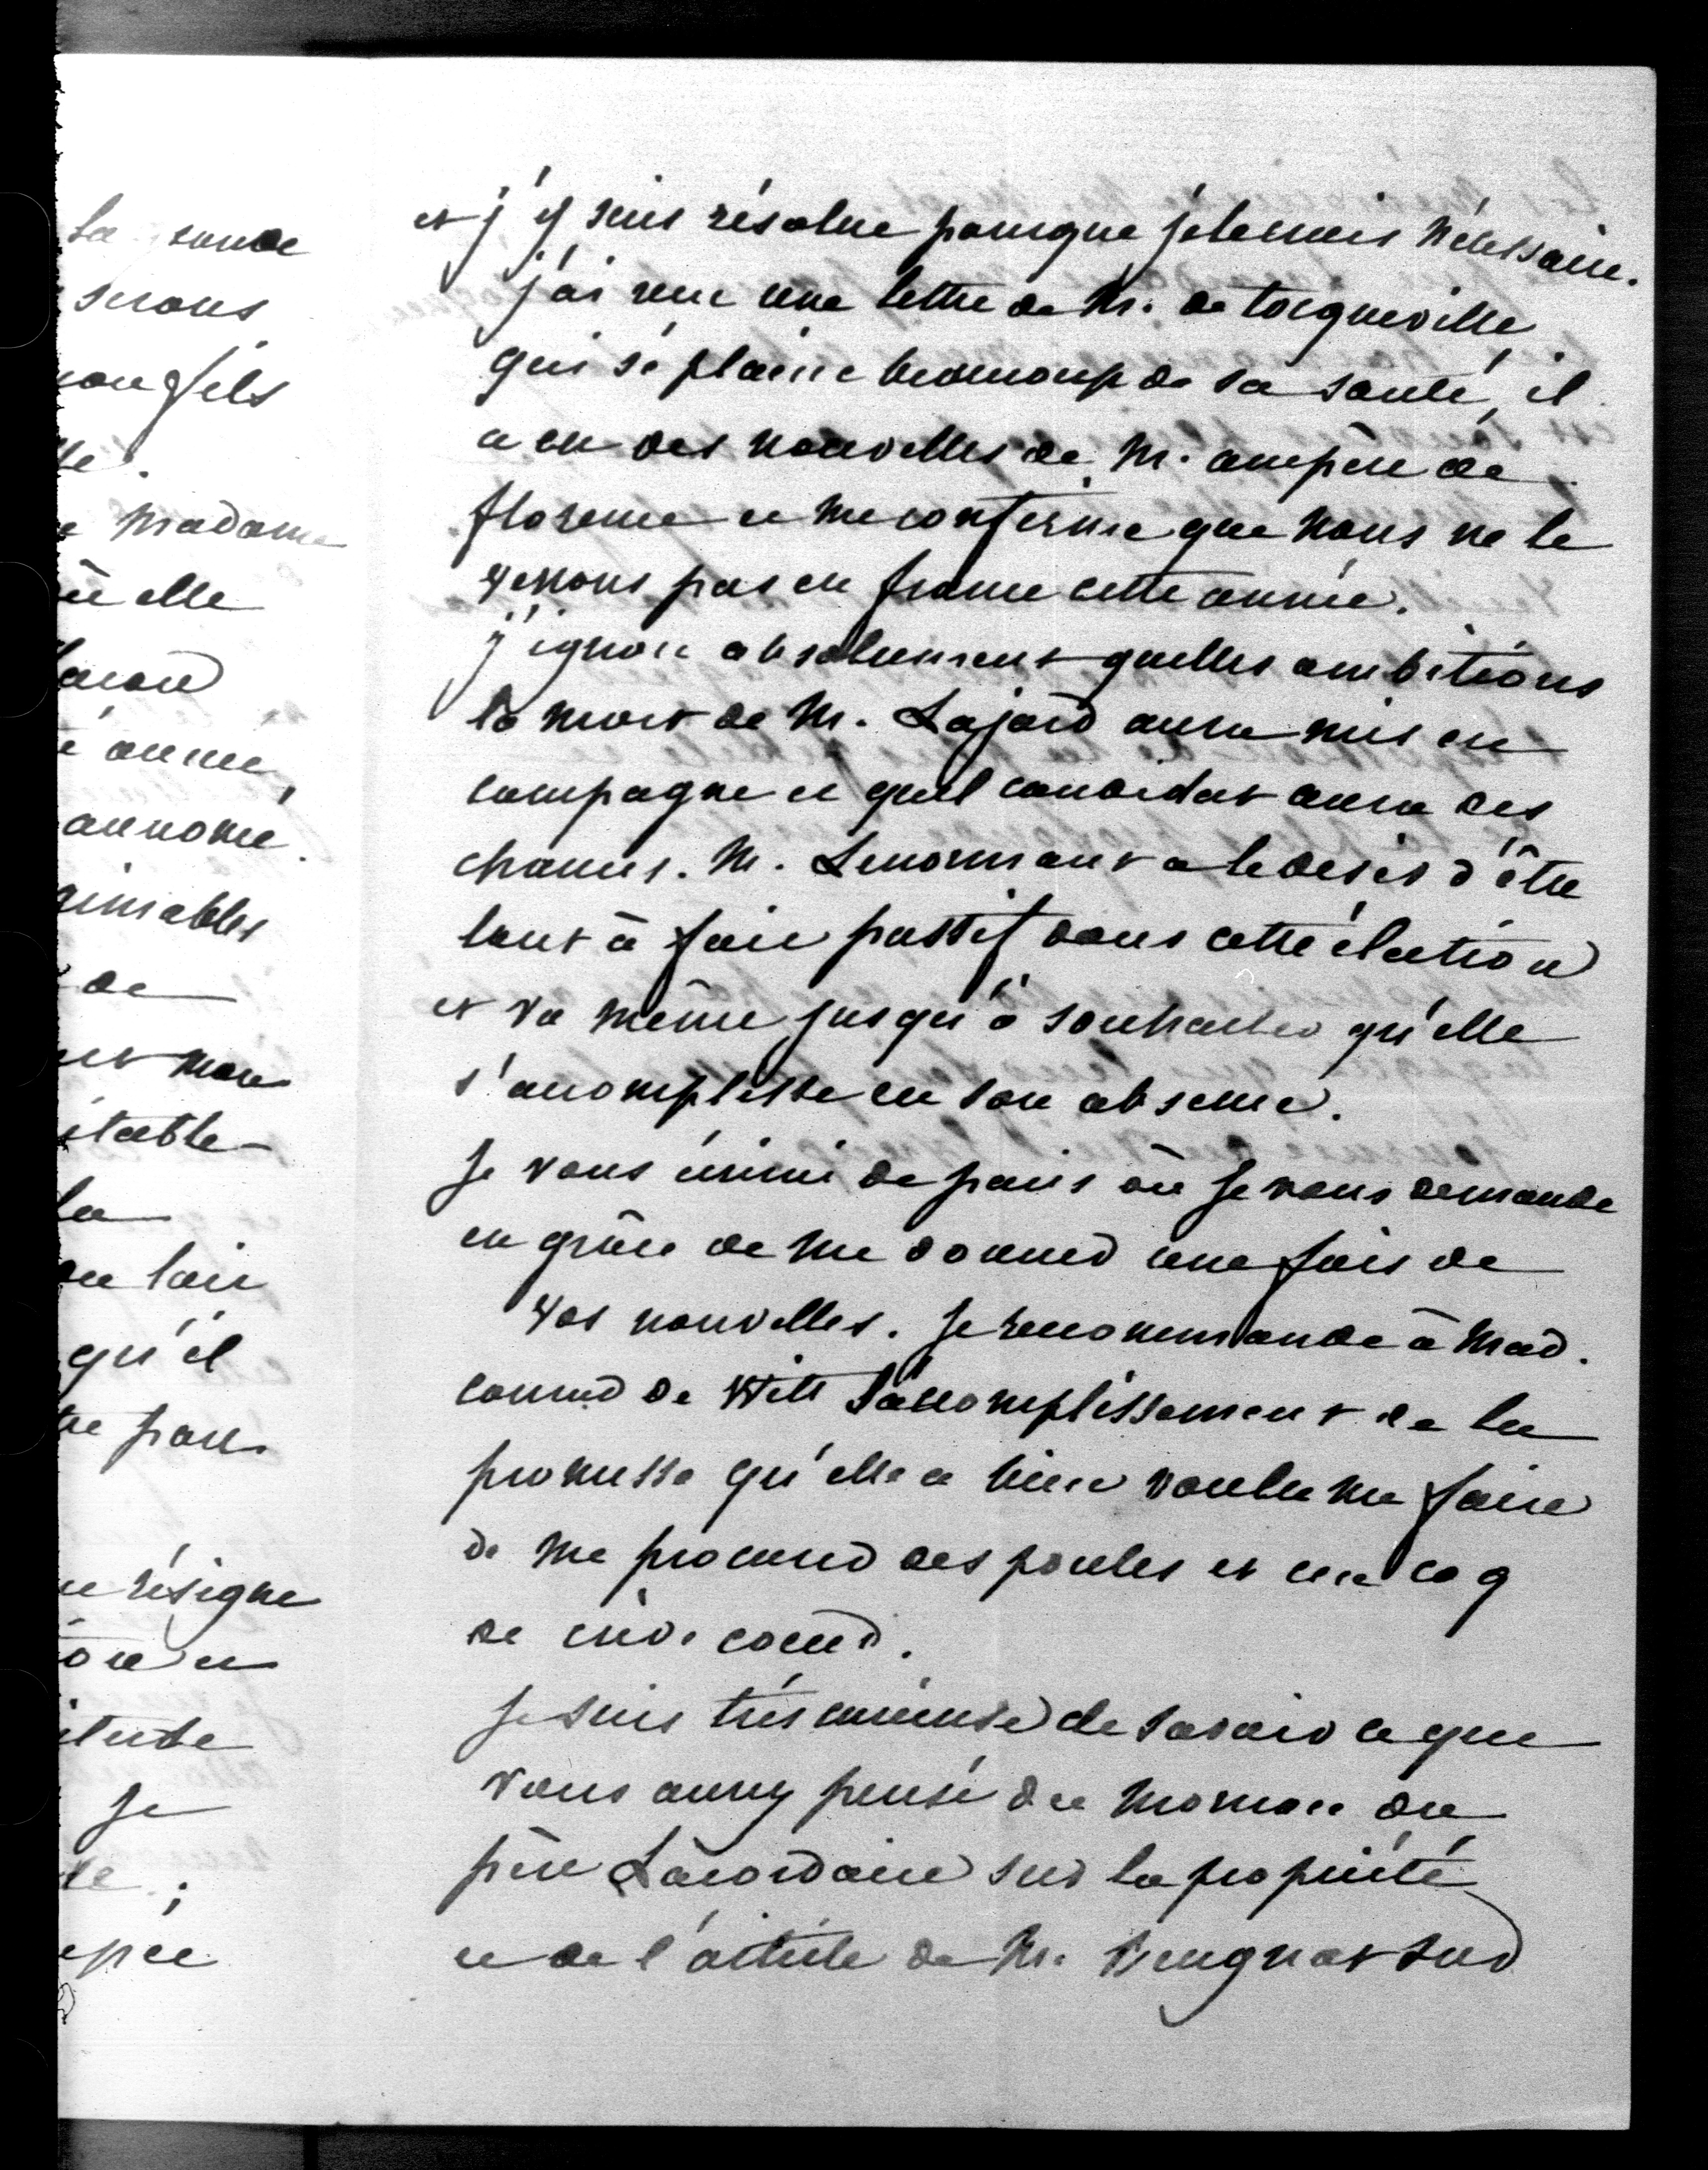 la ronde
serons
mon fils
lle.
e Madame
où elle
é année,
aimables
de
itable
la
qu'il
résigne
itude
je
et j'y suis résolue parceque je le crois nécessaire.
j'ai reçu une lettre de M. de tocqueville
qui se plaint beaucoup de sa santé, il
a eu des nouvelles de M. ampère de
florence et me confirme que nous ne le
verrons pas en france cette année.
j'ignore absolument quelles ambitions
la mort de M. Lajard aura mis en
campagne et quel candidat aura des
chances. M. Lenormant a le desir d'être
tout à fait passif dans cette élection
et va même jusqu'à souhaiter qu'elle
s'accomplisse en son absence.
je vous écrirai de paris où je vous demande
en grâce de me donner une fois de
vos nouvelles. je recommande à Mad.
conrad de Witt l'accomplissement de la
promesse qu'elle a bien voulu me faire
de me procurer des poules et un coq
de crève coeur.
je suis très curieuse de savoir ce que
vous aurez pensé du morceau du
père Lacordaire sur la propriété
et de l'article de M. Beugnot sur